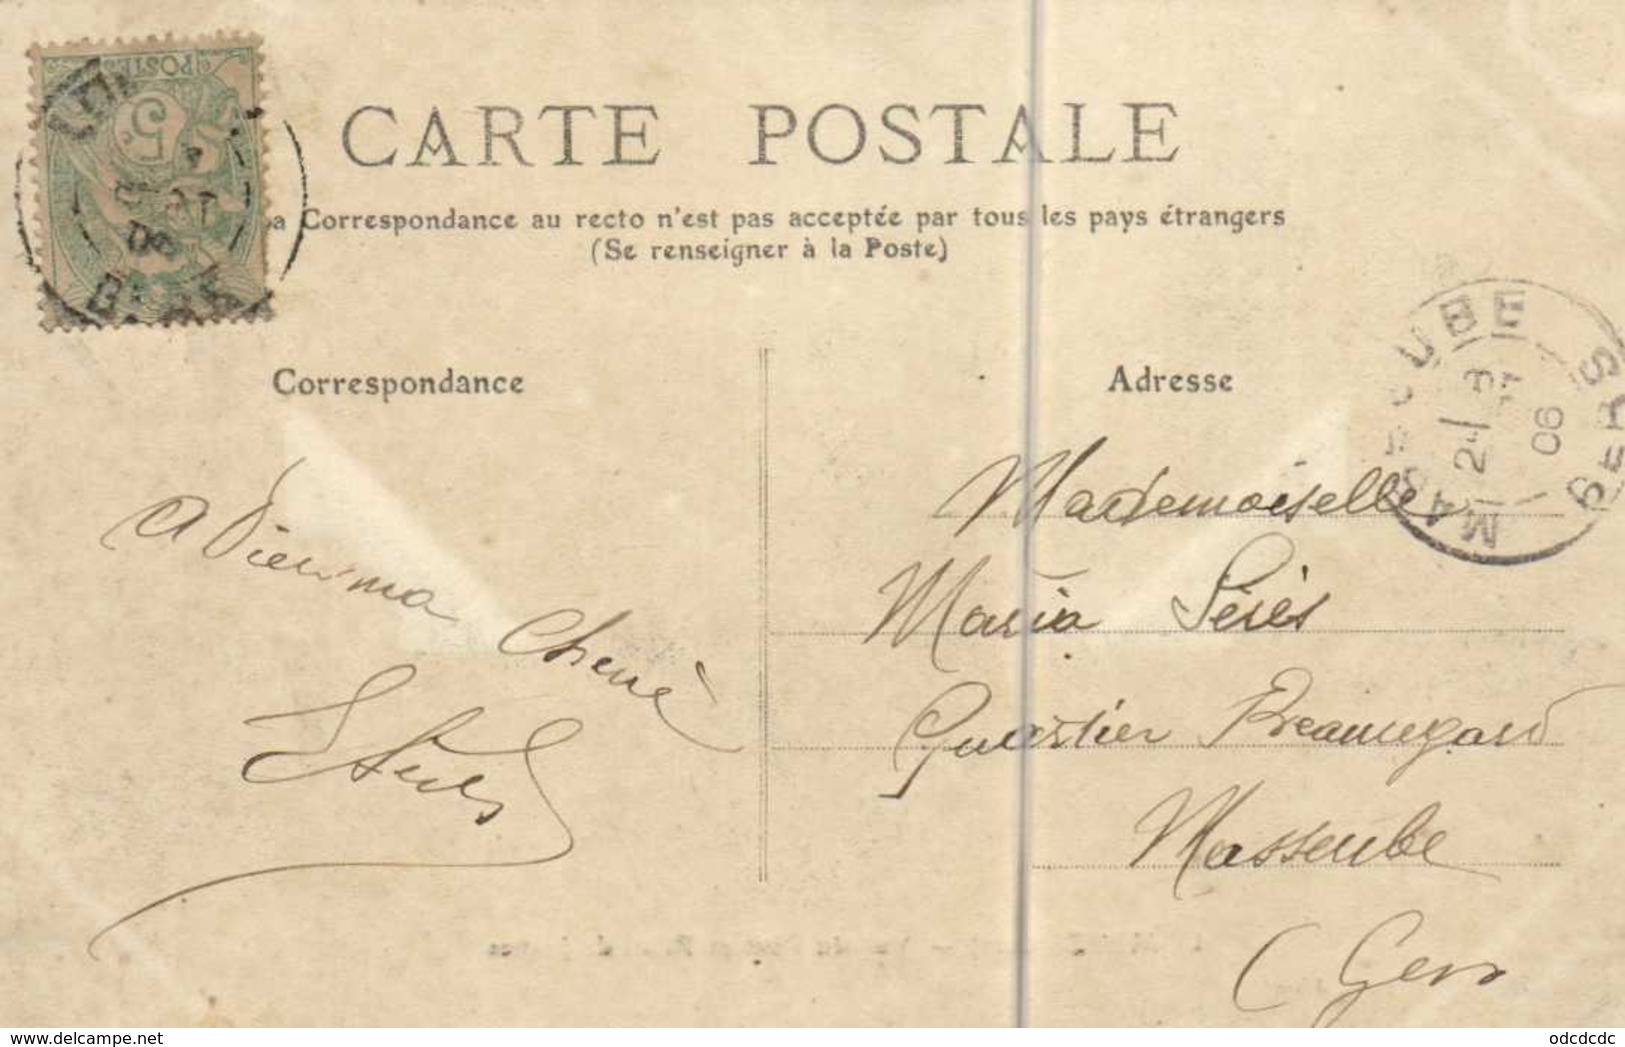 POSTES
5
CARTE POSTALE
a Correspondance au recto n'est pas acceptée par tous les pays étrangers
(Se renseigner à la Poste)
Correspondance
Adresse
MASSEUBE
GERS
24 9
06
a Dieu ma Cherie
Mademoiselle
Maria
Quartier Beauregard
Masseube
(Gers
www.delcampe.net
odcdcdc